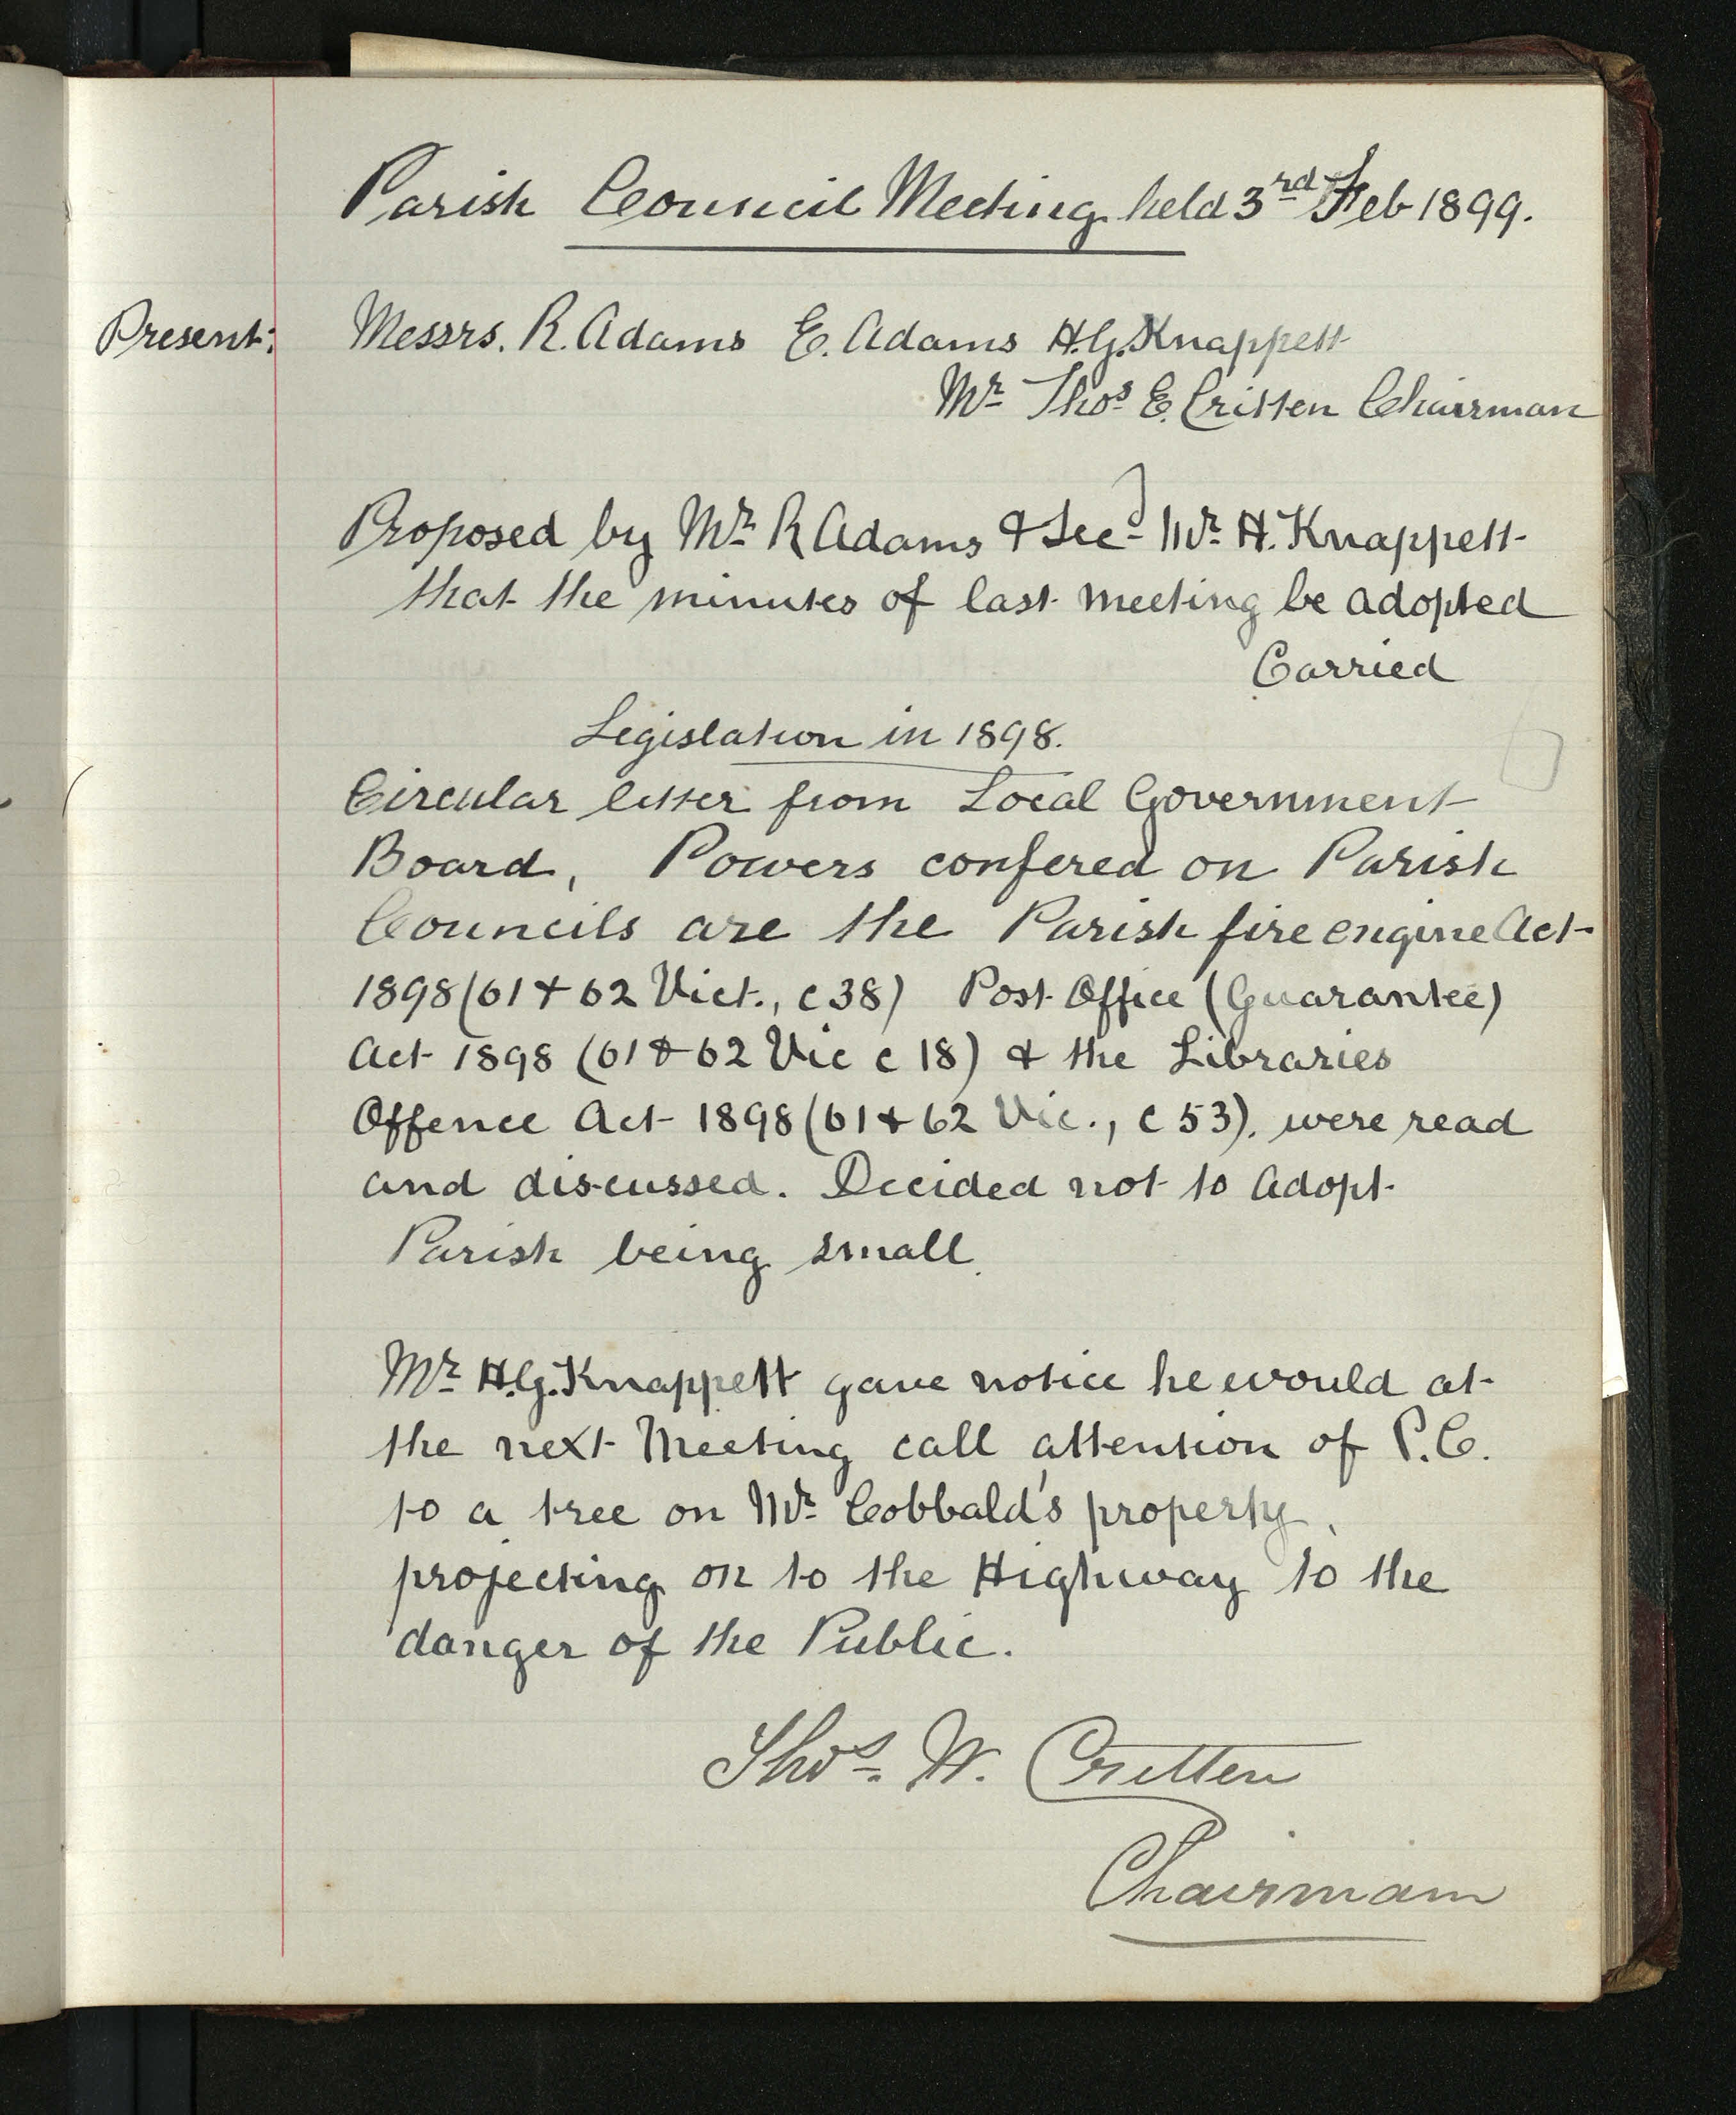 Parish Council Meeting held 3rd Feb 1899.
Present: Messrs. R. Adams E. Adams H.G. Knappett
Mr Thos E. Critten Chairman
Proposed by Mr R Adams & Secd Mr H. Knappett
that the minutes of last meeting be adopted
Carried
Legislation in 1898.
Circular letter from Local Government
Board, Powers confered on Parish
Councils are the Parish fire engine Act
1898 (61 & 62 Vict., c 38) Post Office (Guarantee)
Act 1898 (61 & 62 Vic c 18) & the Libraries
Offence Act 1898 (61 & 62 Vic., c 53). were read
and discussed. Decided not to adopt
Parish being small.
Mr H.G. Knappett gave notice he would at
the next Meeting call attention of P.C.
to a tree on Mr Cobbald's property,
projecting on to the Highway to the
danger of the Public.
Thos. W. Critten
Chairman